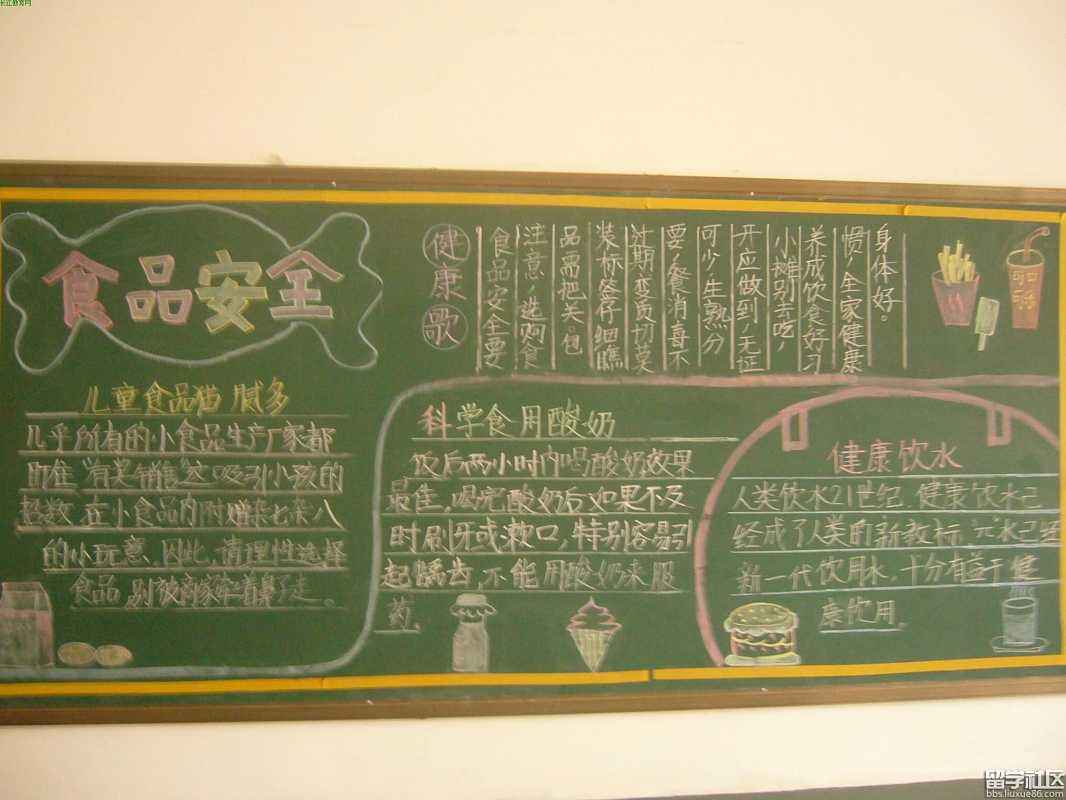 长江教育网
食品安全
儿童食品猫腻多
几乎所有的小食品生产厂家都
附赠 七杂八
的小玩意，因此，请理性选择
食品，别被商家牵着鼻子走。
健康歌
食品安全要
注意，选购食
品需把关。包
装标签仔细瞧
过期变质切莫
要，餐消毒不
可少，生熟分
开应做到，无证
小摊别去吃，
养成饮食好习
惯，全家健康
身体好。
科学食用酸奶
饭后两小时内喝酸奶效果
最佳，喝完酸奶后如果不及
时刷牙或漱口，特别容易引
起龋齿，不能用酸奶来服
药。
健康饮水
人类饮水21世纪，健康饮水已
经成了人类的新教标，元水已经
新一代饮用水，十分有益于健
康饮用。
可口
留学社区
bbs.liuxue86.com